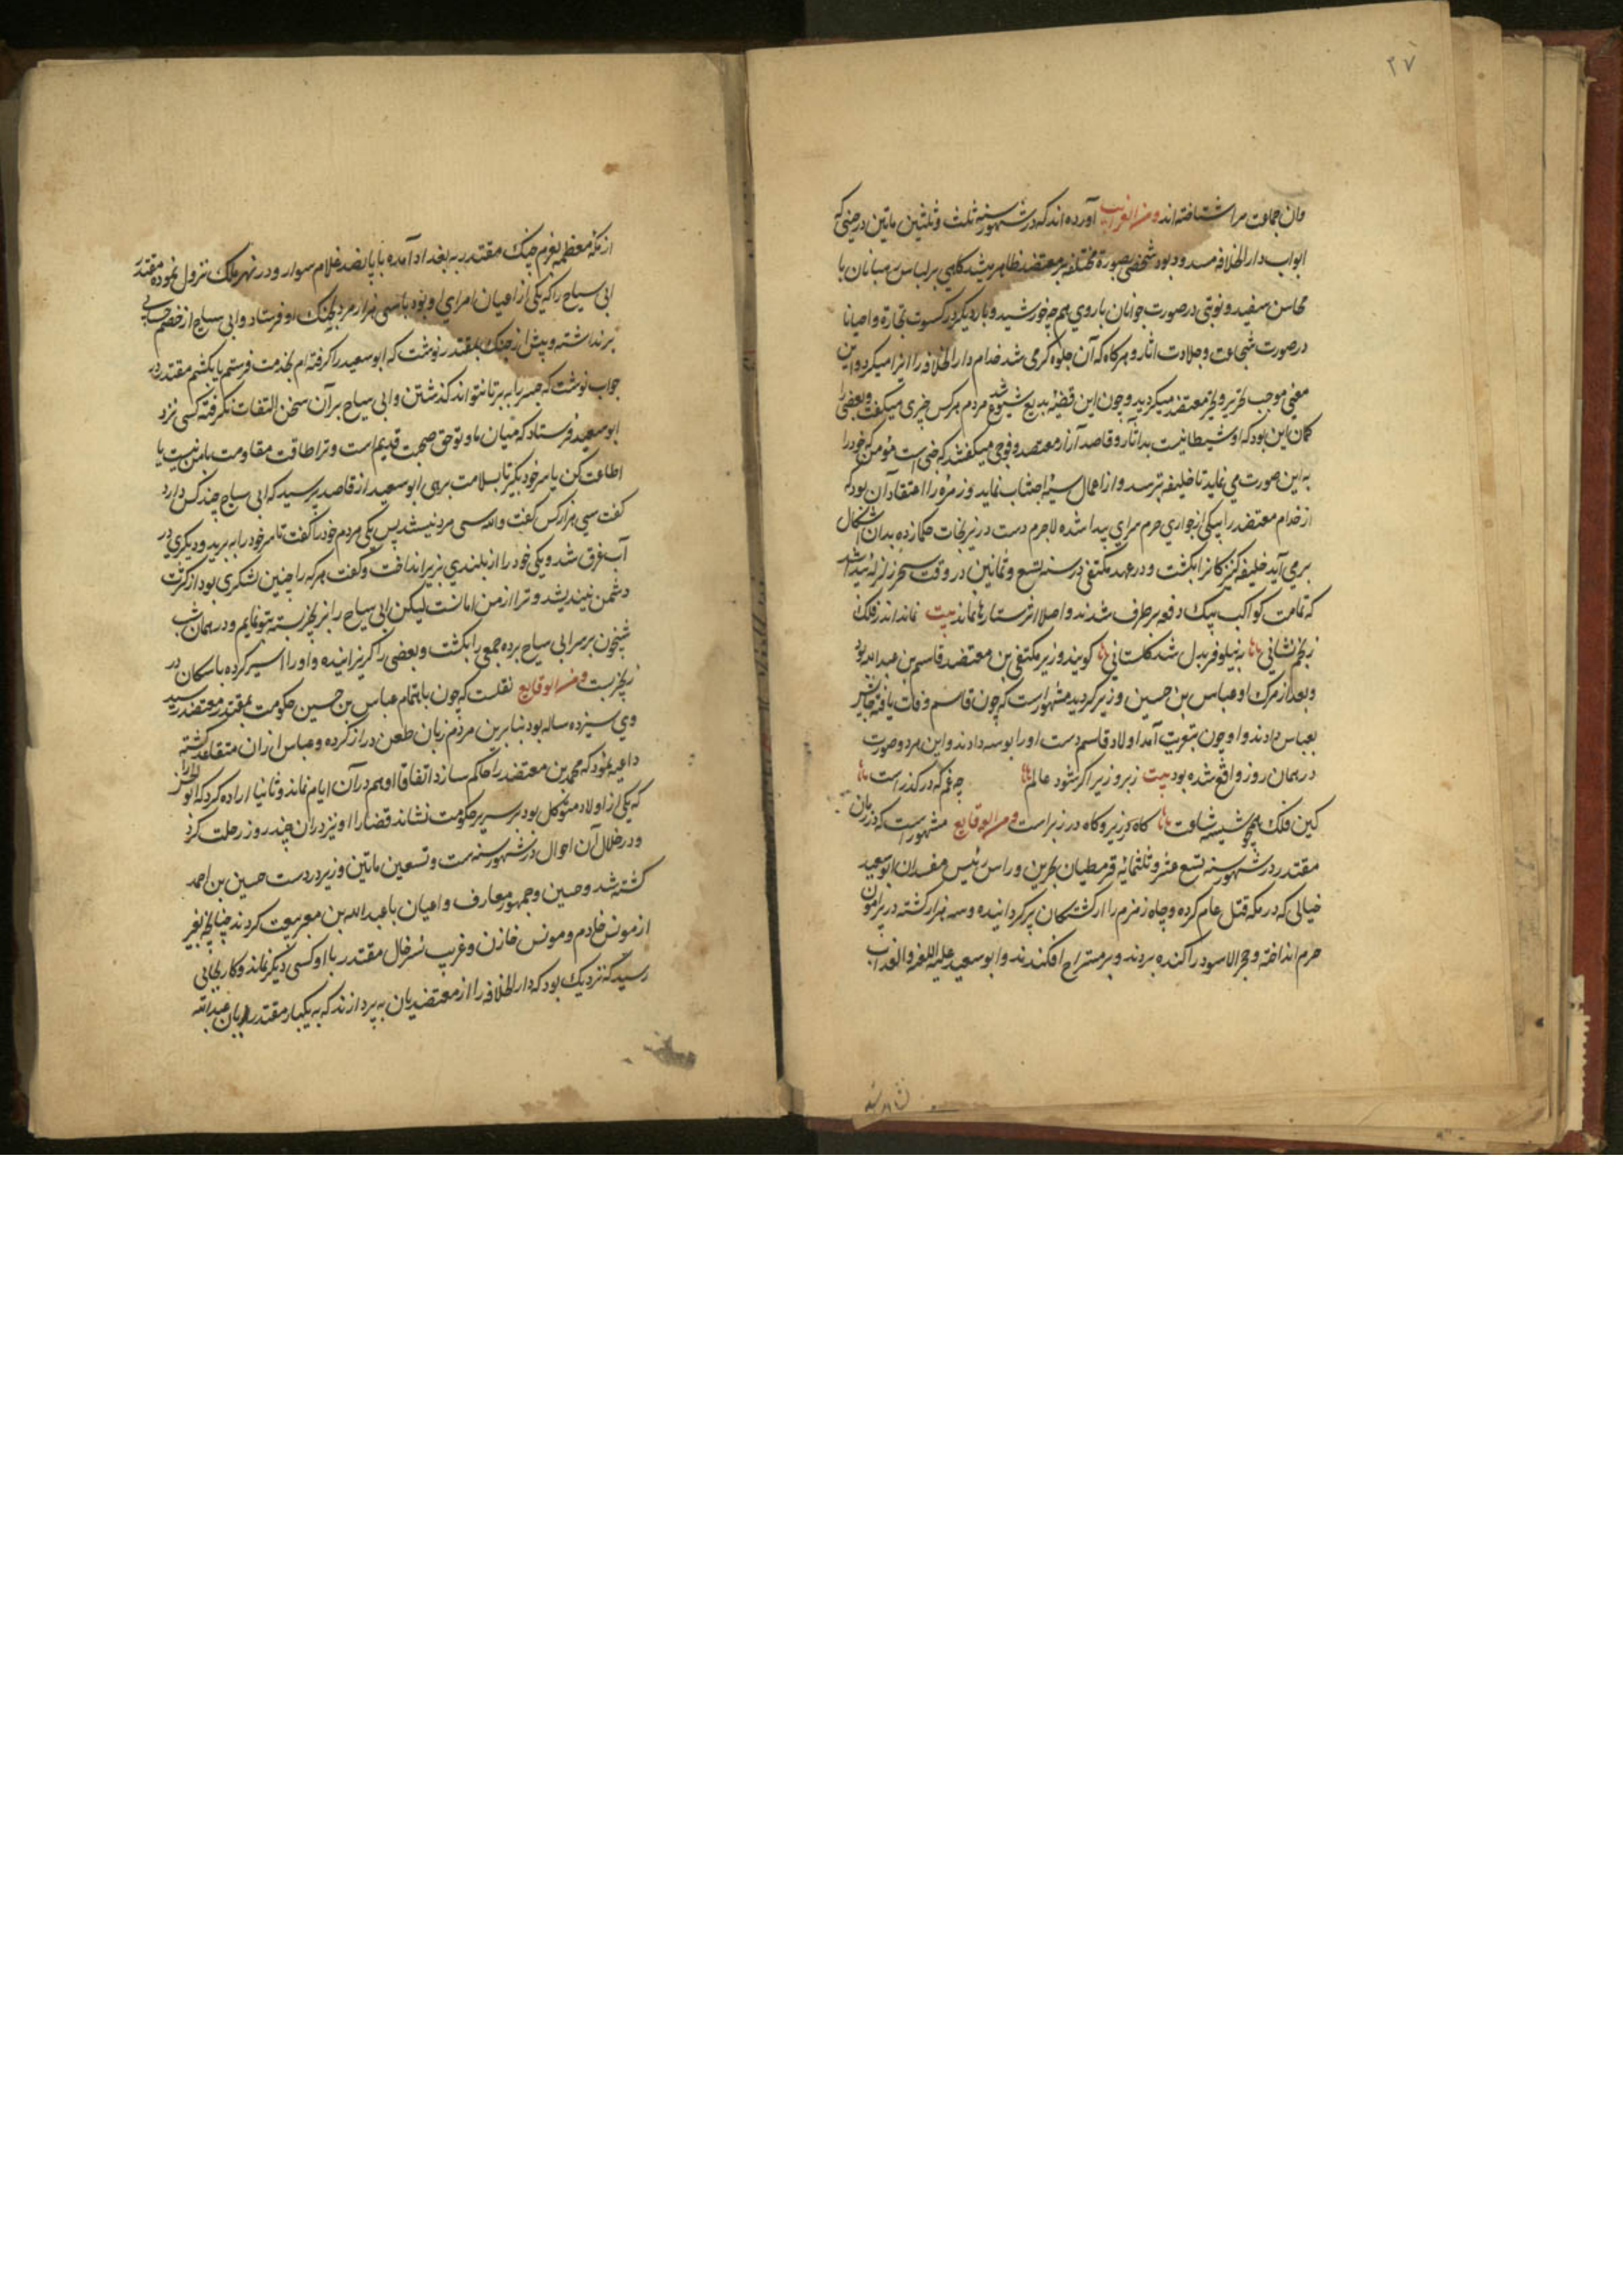 ۲۷
وان جماعت مرا شناخته‌اند ومن الغرایب آورده‌اند که در شهور سنه ثلث و ثلثین ماتین در حینی که
ابواب دار الخلافه مسدود بود شخصی بصورة مختلفه بر معتضد ظاهر میشد کاهی بر لباس رهبانان با
محاسن سفید و نوبتی در صورت جوانان با روی هم چو خورشید و بار دیکر در کسوت تجارة و احیانا
در صورت شجاعت و جلادت اثار و هرکاه که آن جلوه کری می شد خدام دار الخلافه را ایذا میکرد و این
معنی موجب تحیر معتضد میکردید و چون این قضیه بدیع شیوع شد مردم هر کس چیزی میکفت و بعضی را
کمان این بود که او شیطانیست بد آثار و قاصد آزار معتضد و فوجی میکفتند که جنی است مؤمن که خود را
به این صورت می نماید تا خلیفه بترسد و از اعمال سیئه اجتناب نماید و زمره را اعتقاد آن بود که
از خدام معتضد را بیکی از جواری حرم سرای پیدا شده لاجرم دست در نیرنجات حکما زده بدان اشکال
برمی آید خلیفه کنیزکانرا بکشت و در عهد مکتفی در سنه تسع و ثمانین در وقت سحر زلزله پیدا شد
که تمامت کواکب بیک دفعه برطرف شدند و اصلا اثر ستارها نماند بیت نماند اندر فلک
ز انجم نشانی به نیلوفر بدل شد کلستانی کویند وزیر مکتفی بن معتضد قاسم بن عبدالله بود
و بعد از مرک او عباس بن حسین وزیر کردید مشهور است که چون قاسم وفات یافت جایش
بعباس دادند و او چون بتعزیت آمد اولاد قاسم دست او را بوسه دادند و این هر دو صورت
در همان روز واقع شده بود بیت زبر و زیر اکر شود عالم چه غم که در کذر است
کین فلک همچو شیشه ساعت کاه در زیر و کاه در زبر است ومن الوقایع مشهور است که در زمان
مقتدر در شهور سنه تسع عشر و ثلثمائه قرمطیان بحرین و راس رئیس مفسدان ابو سعید
خیالی که در مکه قتل عام کرده و چاه زمزم را از کشتکان پر کردانیده و سه هزار کشته در پیرامون
حرم انداخته و حجر الاسود را کنده بردند و بر مستراح افکندند و ابو سعید علیه اللعنه والعذاب
از مکه معظمه بعزم جنک مقتدر به بغداد آمده با پانصد غلام سوار و در نهر ملک نزول نموده مقتدر
ابی سیاج را که یکی از اعیان امرای او بود با سی هزار مرد بجنک او فرستاد و ابی سیاج از خصم حسابی
برنداشته و پیش از جنک بمقتدر نوشت که ابو سعید را کرفته‌ام بخدمت فرستم یا بکشم مقتدر در
جواب نوشت که جسر را ببر تا نتواند کذشتن و ابی سیاج بر آن سخن التفات نکرفته کسی نزد
ابو سعید فرستاد که میان ما و تو حق صحبت قدیم است و ترا طاقت مقاومت با من نیست یا
اطاعت کن یا سر خود بکیر تا بسلامت بروی ابو سعید از قاصد پرسید که ابی سیاج چند کس دارد
کفت سی هزار کس کفت والله سی مرد نیستند پس یکی مردم خود را کفت تا سر خود را به برید و دیکری در
آب غرق شد و یکی خود را از بلندی بزیر انداخت و کفت هر که را چنین لشکری بود از کثرت
دشمن نیندیشد و ترا از من امانست لیکن ابی سیاج را بزنجیر بسته بتو نمایم و در همان شب
شبخون بر سر ابی سیاج برده جمعی را بکشت و بعضی را کریزانیده و او را اسیر کرده با سکان در
زنجیر بست ومن الوقایع نقلست که چون باهتمام عباس بن حسین حکومت بمقتدر معتضد رسید
وی سیزده ساله بود بنابرین مردم زبان طعن دراز کرده و عباس ازان متقاعد کشته
داعیه نمود که محمد بن معتضد را حاکم سازد اتفاقا او هم در آن ایام نماند و ثانیا اراده کرد که
که یکی از اولاد متوکل بود بر سریر حکومت نشاند قضا را او نیز دران چند روز رحلت کرد
و در خلال آن احوال در شهور سنه ست و تسعین ماتین وزیر در دست حسین بن احمد
کشته شد و حسین و جمهور معارف و اعیان با عبدالله بن معز بیعت کردند چنانچه بغیر
از مونس خادم و مونس خازن و غریب خال مقتدر با او کسی دیکر نماند و کار بجایی
رسید که نزدیک بود که دار الخلافه را از معتضدیان به پردازند که به یکبار مقتدر عبدالله